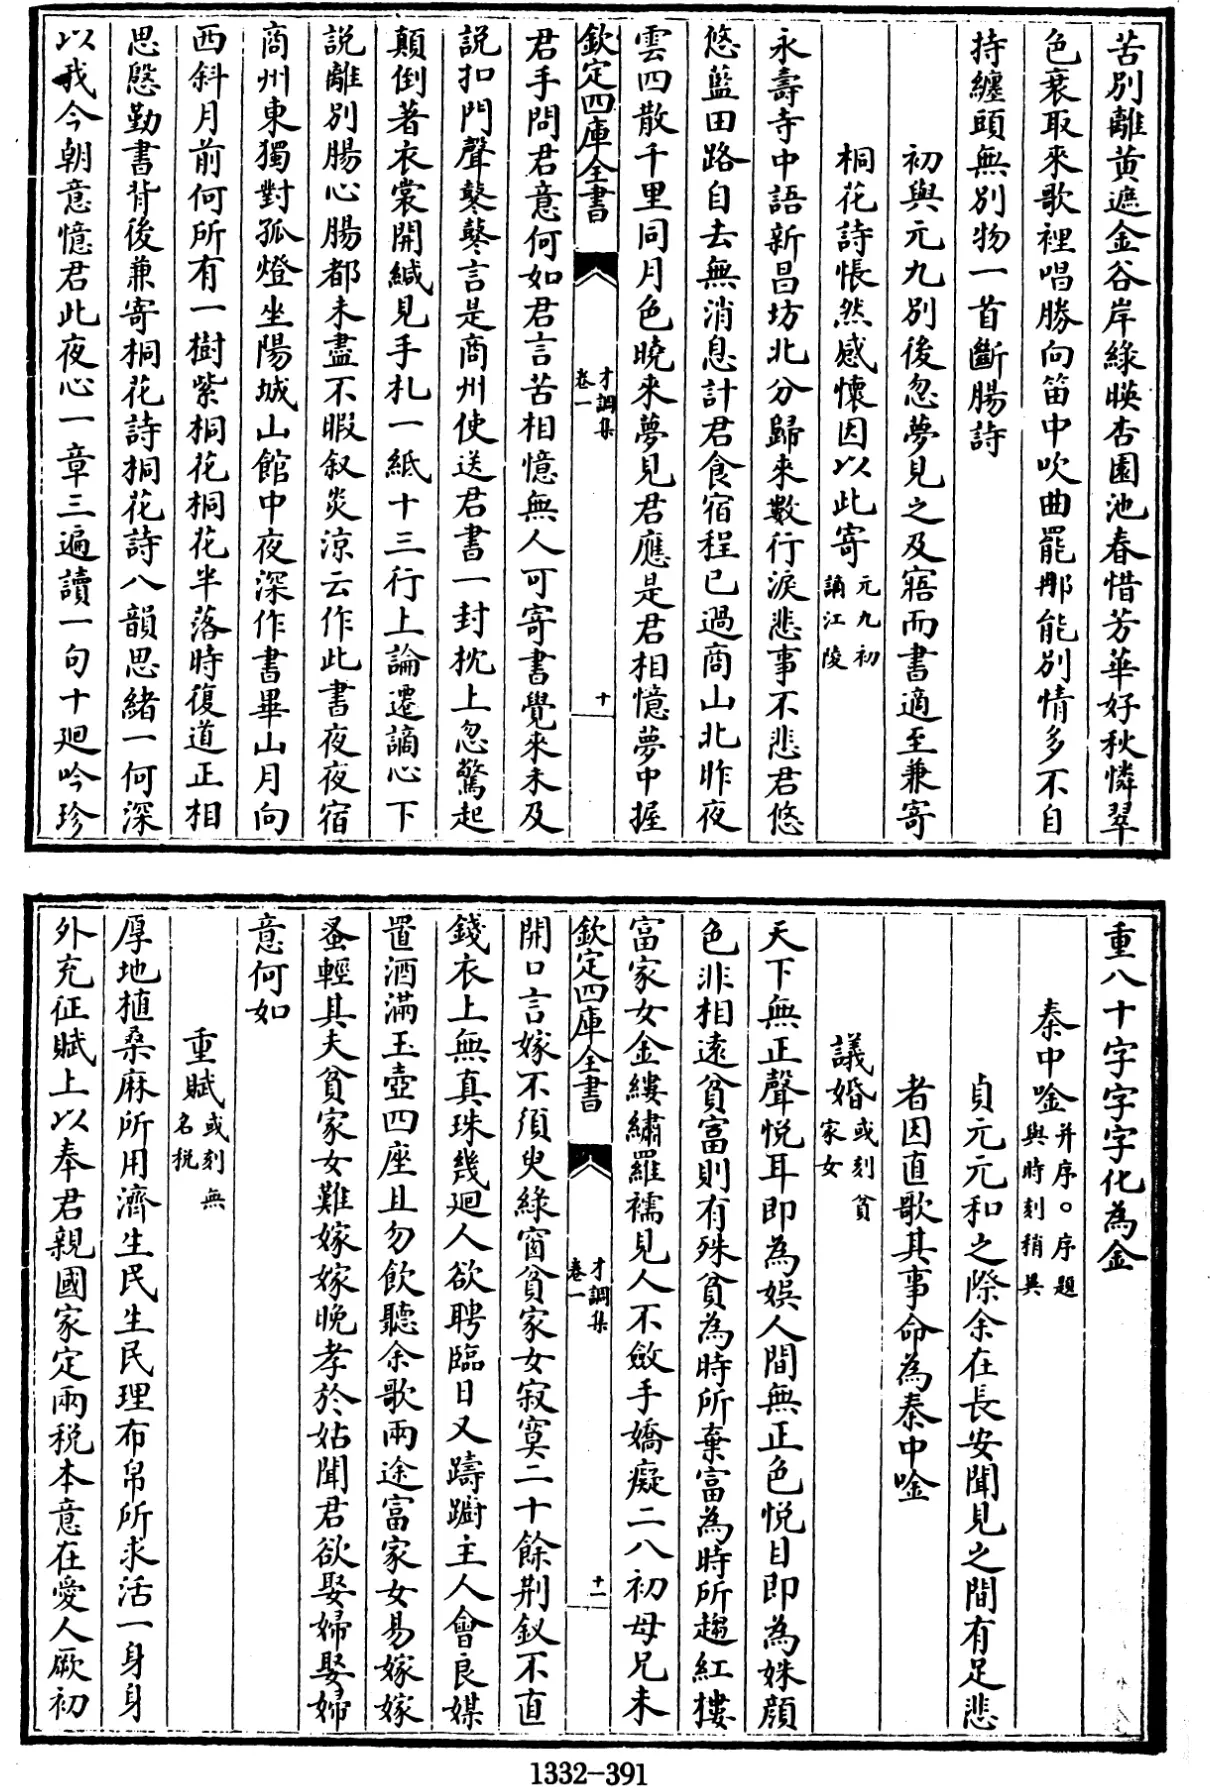 苦別離黄遮金谷岸緑暎杏園池春惜芳華好秋憐翠
色衰取來歌裡唱勝向笛中吹曲罷那能別情多不自
持纏頭無別物一首斷腸詩
初與元九別後忽夢見之及寤而書適至兼寄
桐花詩悵然感懷因以此寄元九初謫江陵
永壽寺中語新昌坊北分歸來數行淚悲事不悲君悠
悠藍田路自去無消息計君食宿程已過商山北昨夜
雲四散千里同月色曉來夢見君應是君相憶夢中握
欽定四庫全書
才調集
卷一
十
君手問君意何如君言苦相憶無人可寄書覺來未及
説扣門聲鼕鼕言是商州使送君書一封枕上忽驚起
顛倒著衣裳開緘見手札一紙十三行上論遷謫心下
説離別腸心腸都未盡不暇叙炎涼云作此書夜夜宿
商州東獨對孤燈坐陽城山館中夜深作書畢山月向
西斜月前何所有一樹紫桐花桐花半落時復道正相
思慇勤書背後兼寄桐花詩桐花詩八韻思緒一何深
以我今朝意憶君此夜心一章三遍讀一句十廻吟珍
重八十字字字化為金
秦中唫并序○序題與時刻稍異
貞元元和之際余在長安聞見之間有足悲
者因直歌其事命為秦中唫
議婚或刻貧家女
天下無正聲悦耳即為娯人間無正色悦目即為姝顔
色非相遠貧富則有殊貧為時所棄富為時所趨紅樓
富家女金縷繡羅襦見人不斂手嬌癡二八初母兄未
欽定四庫全書
才調集
卷一
十一
開口言嫁不須臾緑窗貧家女寂寞二十餘荆釵不直
錢衣上無真珠幾廻人欲聘臨日又躊躕主人會良媒
置酒滿玉壺四座且勿飲聽余歌兩途富家女易嫁嫁
蚤輕其夫貧家女難嫁嫁晚孝於姑聞君欲娶婦娶婦
意何如
重賦或刻無名税
厚地植桑麻所用濟生民生民理布帛所求活一身身
外充征賦上以奉君親國家定兩税本意在愛人厥初
1332-391